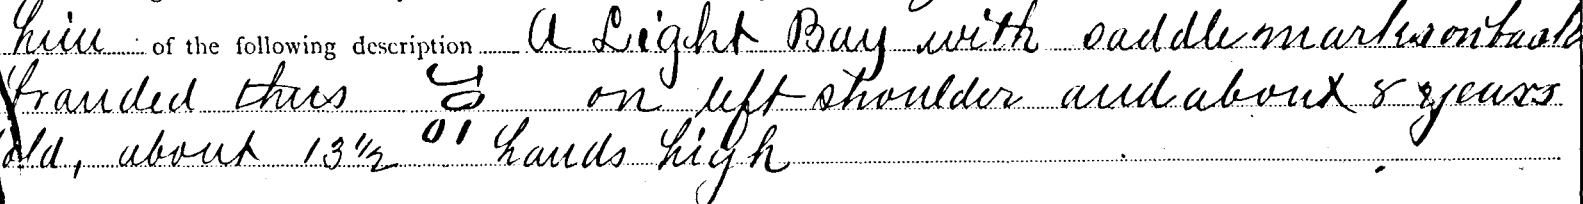 him of the following description A Light Bay with saddle marks on back
branded thus on left shoulder and about 8 years
old, about 13 1/2 hands high